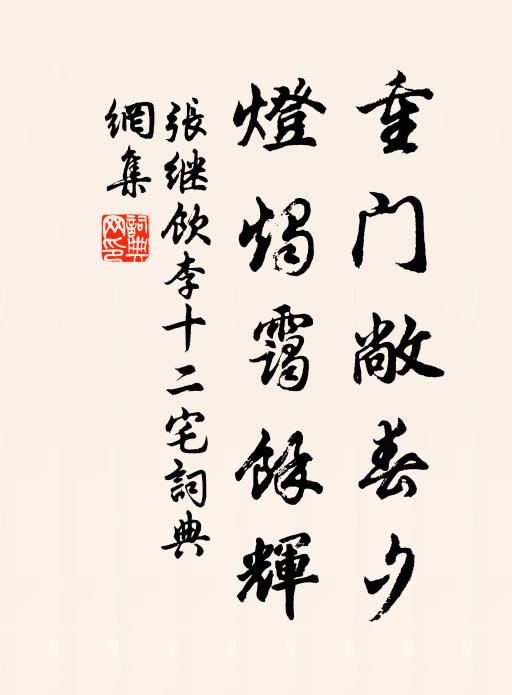 重门敞春夕
燈燭靄餘輝
張继飲李十二宅詞典
網集
詞典
网印